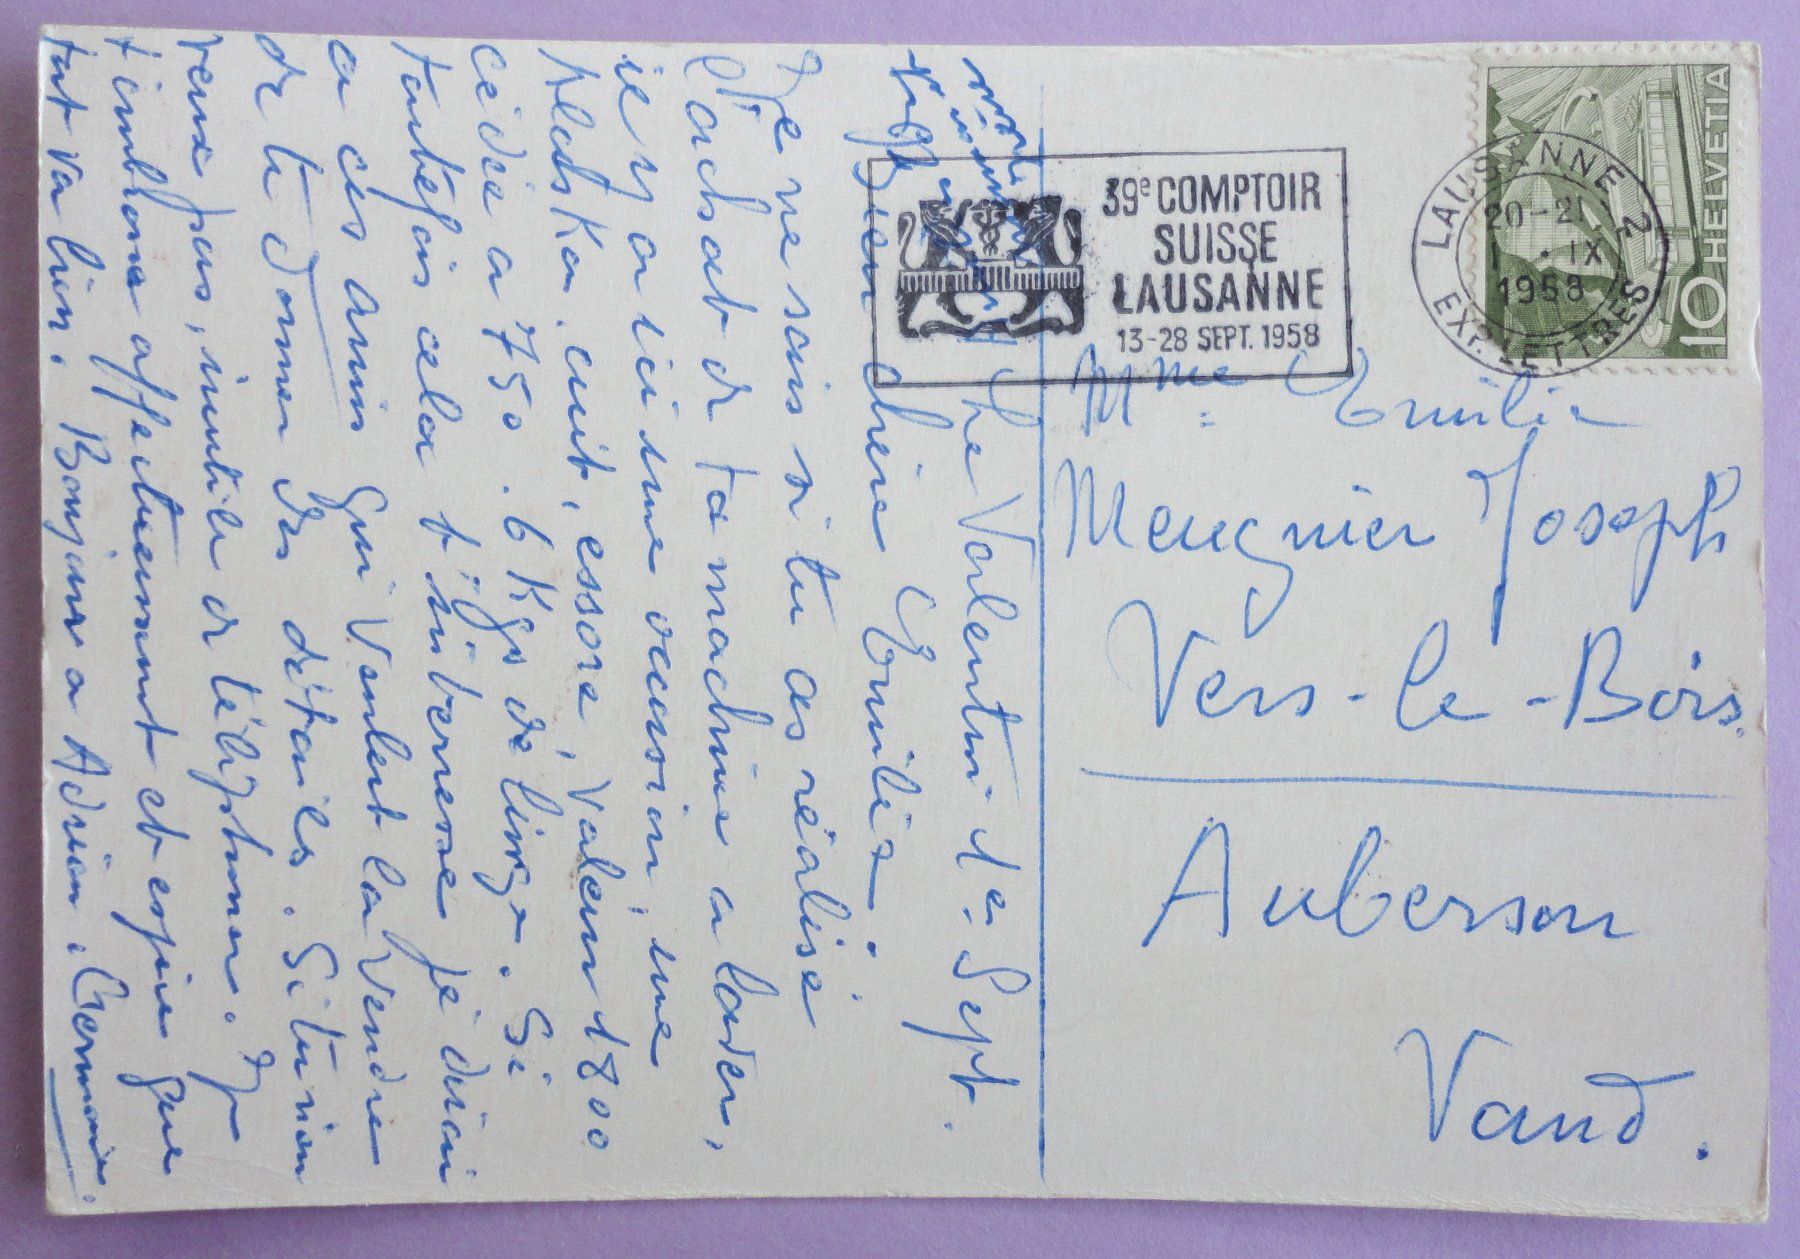 Le Valentin 1er Sept.
Bien chère Emilia.
Je ne sais si tu as réalisé
l'achat de ta machine a laver,
il y a ici une occasion, une
cuit, essore, valeur 1800
cédée a 750. 6 Kgs de linge. Si
toutefois cela t'intéresse je dirai
a ces amis qui veulent la vendre
de te donner des détails. Si tu n'en
veux pas, inutile de téléphoner. Je
t'embrasse affectueusement et espère que
tout va bien. Bonjour a Adrien. Germaine.
39e COMPTOIR
SUISSE
LAUSANNE
13-28 SEPT. 1958
LAUSANNE 2
20-21
1.IX
1958
EXP. LETTRES
HELVETIA
10
Mme Emilia
Meugnier Joseph
Vers-le-Bois.
Auberson
Vaud.